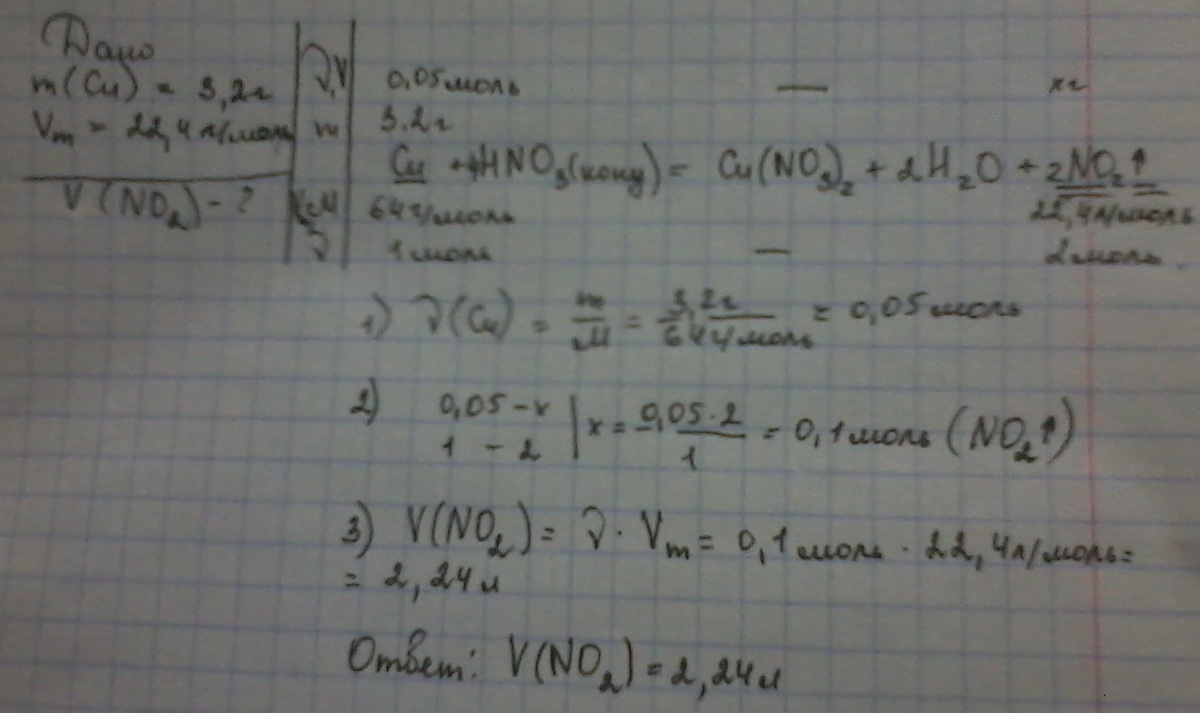 Дано
m(Cu) = 3,2г
Vm = 22,4л/моль
V(NO₂) - ?
ν,V 0,05моль — xг
m 3.2г
Cu + 4HNO₃(конц) = Cu(NO₃)₂ + 2H₂O + 2NO₂↑
M 64г/моль 22,4л/моль
ν 1моль — 2моль
1) ν(Cu) = m/M = 3,2г/64г/моль = 0,05моль
2) 0,05 - x | x = 0,05·2/1 = 0,1моль (NO₂↑)
1 - 2
3) V(NO₂) = ν · Vm = 0,1моль · 22,4л/моль =
= 2,24л
Ответ: V(NO₂) = 2,24л